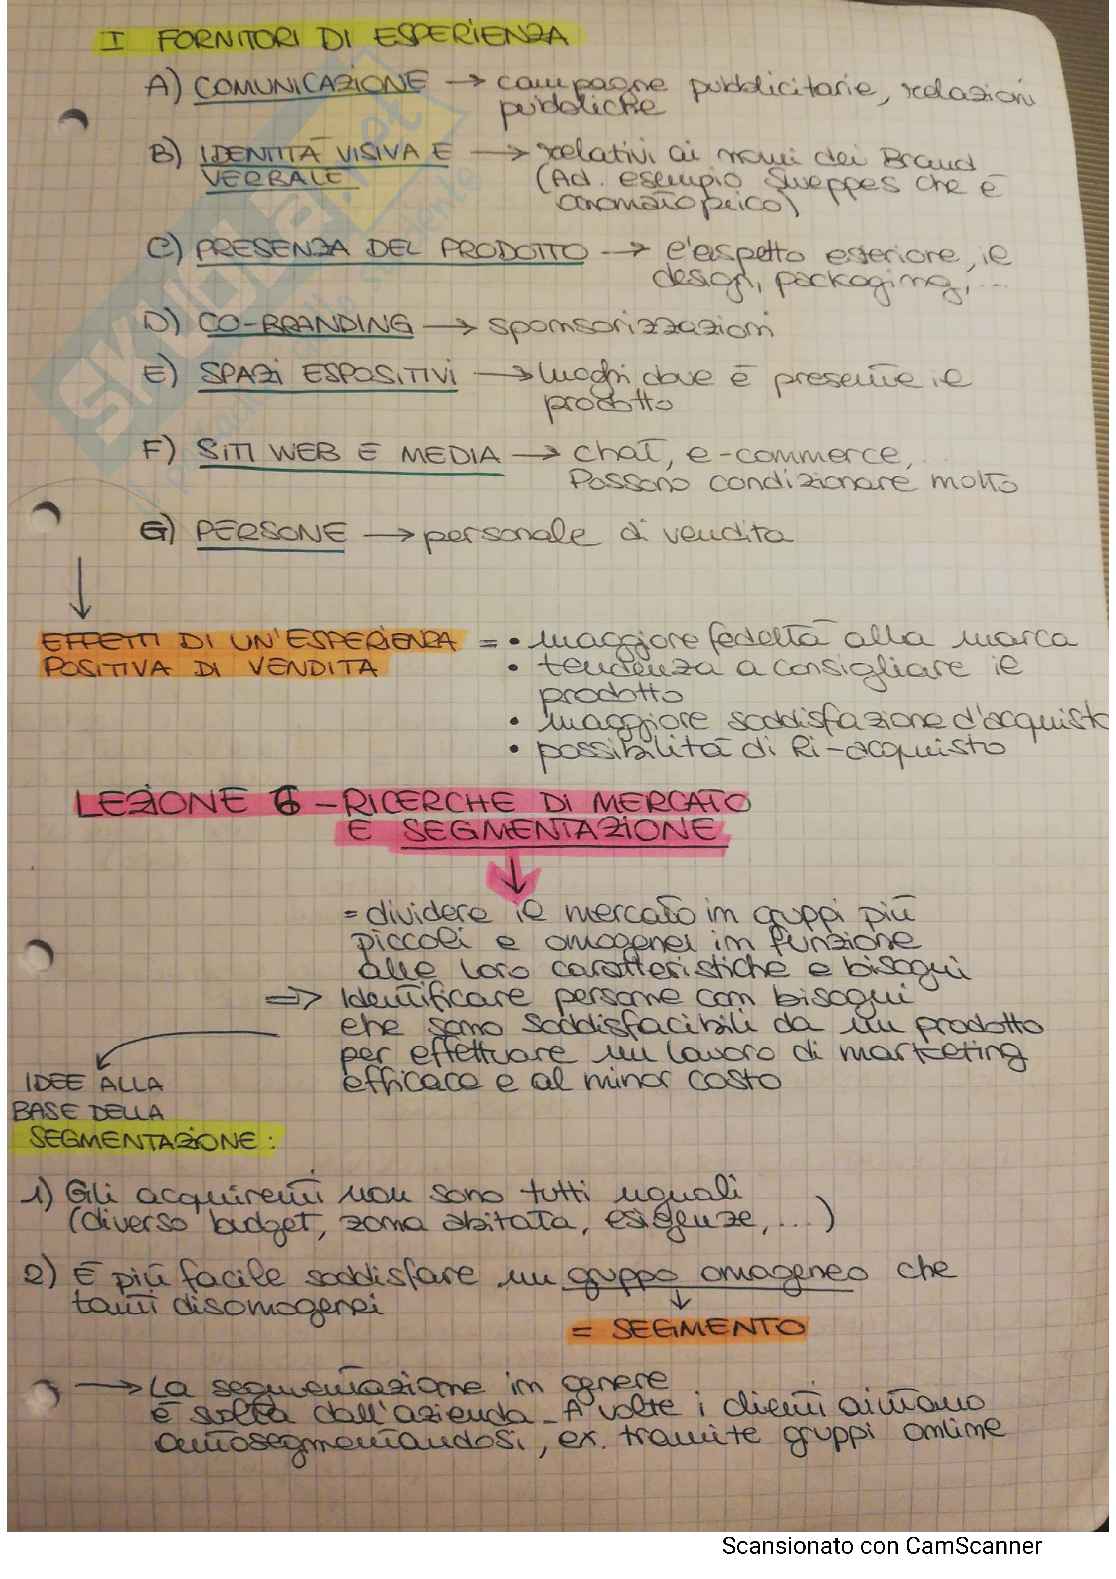 I FORNITORI DI ESPERIENZA
A) COMUNICAZIONE → campagne pubblicitarie, relazioni
pubbliche
B) IDENTITÀ VISIVA E → relativi ai nomi dei Brand
VERBALE (Ad. esempio Sweppes che è
onomatopeico)
C) PRESENZA DEL PRODOTTO → l'aspetto esteriore, il
design, packaging, ...
D) CO-BRANDING → sponsorizzazioni
E) SPAZI ESPOSITIVI → luoghi dove è presente il
prodotto
F) SITI WEB E MEDIA → chat, e-commerce, ...
Possono condizionare molto
G) PERSONE → personale di vendita
EFFETTI DI UN'ESPERIENZA = • maggiore fedeltà alla marca
POSITIVA DI VENDITA • tendenza a consigliare il
prodotto
• maggiore soddisfazione d'acquisto
• possibilità di Ri-acquisto
LEZIONE 6 - RICERCHE DI MERCATO
E SEGMENTAZIONE
= dividere il mercato in gruppi più
piccoli e omogenei in funzione
alle loro caratteristiche e bisogni
⇒ Identificare persone con bisogni
che sono soddisfacibili da un prodotto
per effettuare un lavoro di marketing
efficace e al minor costo
IDEE ALLA
BASE DELLA
SEGMENTAZIONE:
1) Gli acquirenti non sono tutti uguali
(diverso budget, zona abitata, esigenze, ...)
2) È più facile soddisfare un gruppo omogeneo che
tanti disomogenei
= SEGMENTO
→ La segmentazione in genere
è svolta dall'azienda. A volte i clienti aiutano
automosegmentandosi, ex. tramite gruppi online
SKUOLA.net
Scansionato con CamScanner